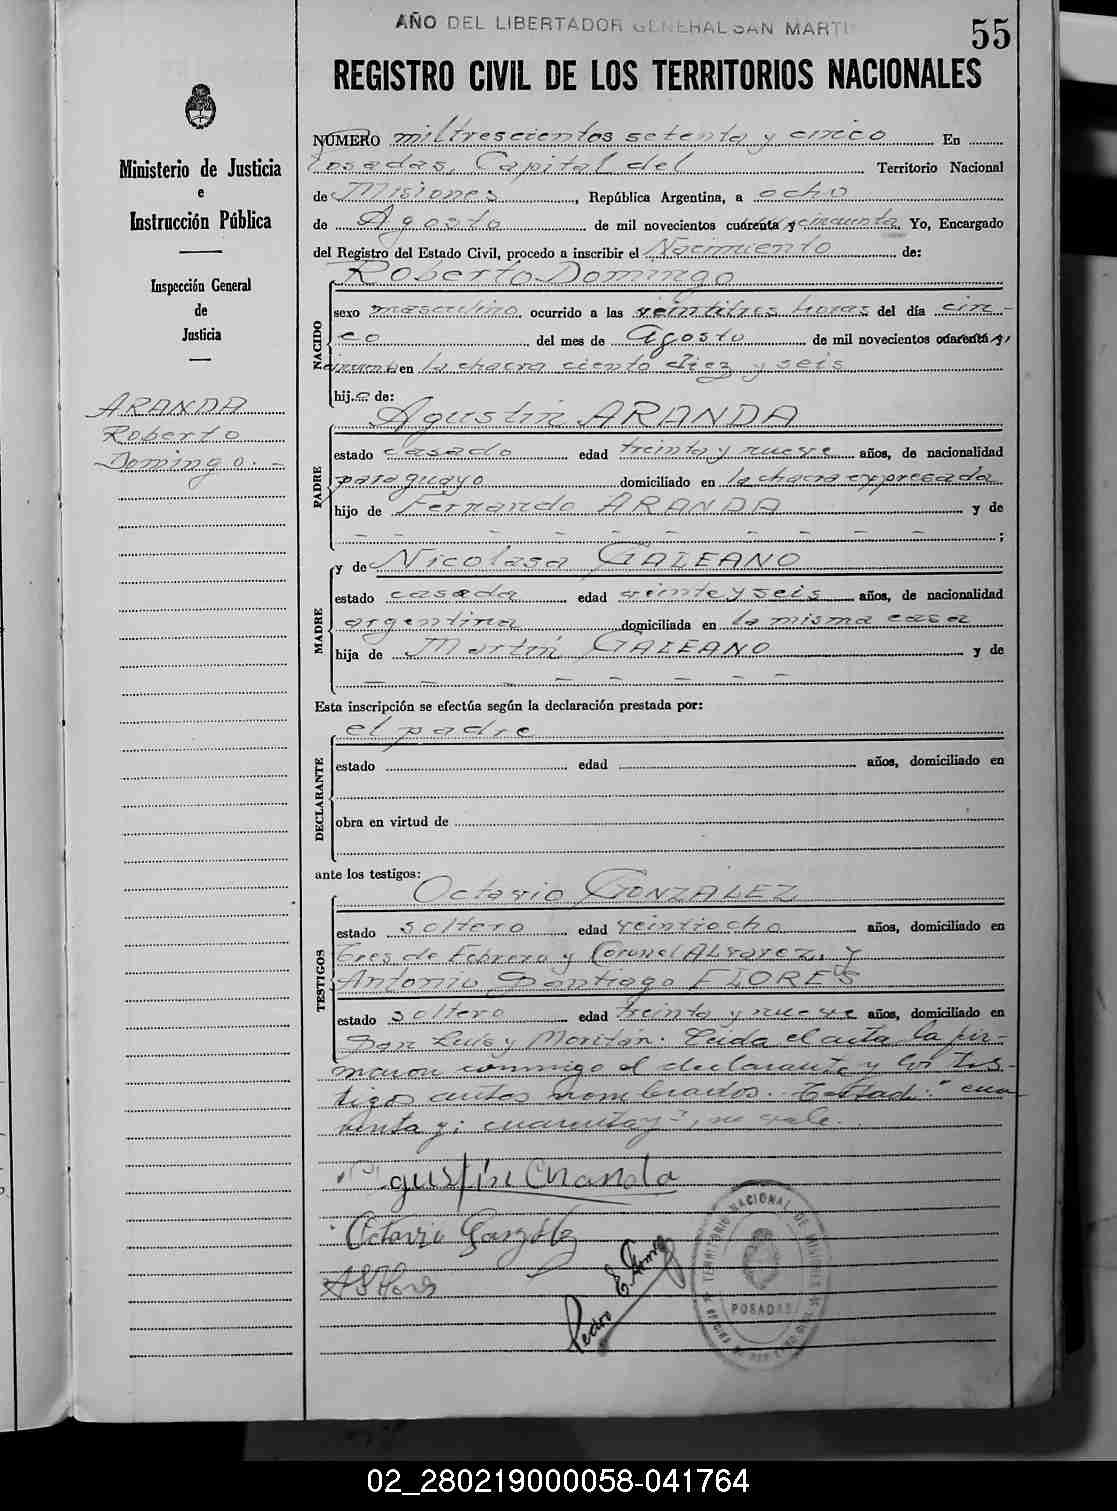 AÑO DEL LIBERTADOR GENERAL SAN MARTI
55
REGISTRO CIVIL DE LOS TERRITORIOS NACIONALES
Ministerio de Justicia
e
Instrucción Pública
Inspección General
de
Justicia
ARANDA
Roberto
Domingo.-
NÚMERO miltrescientos setenta y cinco En
Posadas, Capital del Territorio Nacional
de Misiones, República Argentina, a ocho
de Agosto de mil novecientos cuarenta y cincuenta Yo, Encargado
del Registro del Estado Civil, procedo a inscribir el Nacimiento de:
NACIDO
Roberto Domingo
sexo masculino ocurrido a las veintitres horas del día cin-
co del mes de Agosto de mil novecientos cuarenta y
cincuenta en la chacra ciento diez y seis
hijo de:
PADRE
Agustin ARANDA
estado casado edad treinta y nueve años, de nacionalidad
paraguayo domiciliado en la chacra expresada
hijo de Fernando ARANDA y de
- - - - - - - - - ;
MADRE
y de Nicolasa GALEANO
estado casada edad veinte y seis años, de nacionalidad
argentina domiciliada en la misma casa
hija de Martín GALEANO y de
- - - - - - - - -
Esta inscripción se efectúa según la declaración prestada por:
DECLARANTE
el padre
estado edad años, domiciliado en
obra en virtud de
ante los testigos:
TESTIGOS
Octavio GONZALEZ
estado soltero edad veintiocho años, domiciliado en
Tres de Febrero y Coronel Alvarez, y
Antonio Santiago FLORES
estado soltero edad treinta y nueve años, domiciliado en
San Luis y Moritán. Leida el acta la fir-
maron conmigo el declarante y los tes-
tigos antes nombrados. Testad: "cua
renta y; cuarenta y", no vale.
Agustín Aranda
Octavio González
A S Flores
Pedro E.
TERRITORIO NACIONAL DE MISIONES
POSADAS
02_280219000058-041764